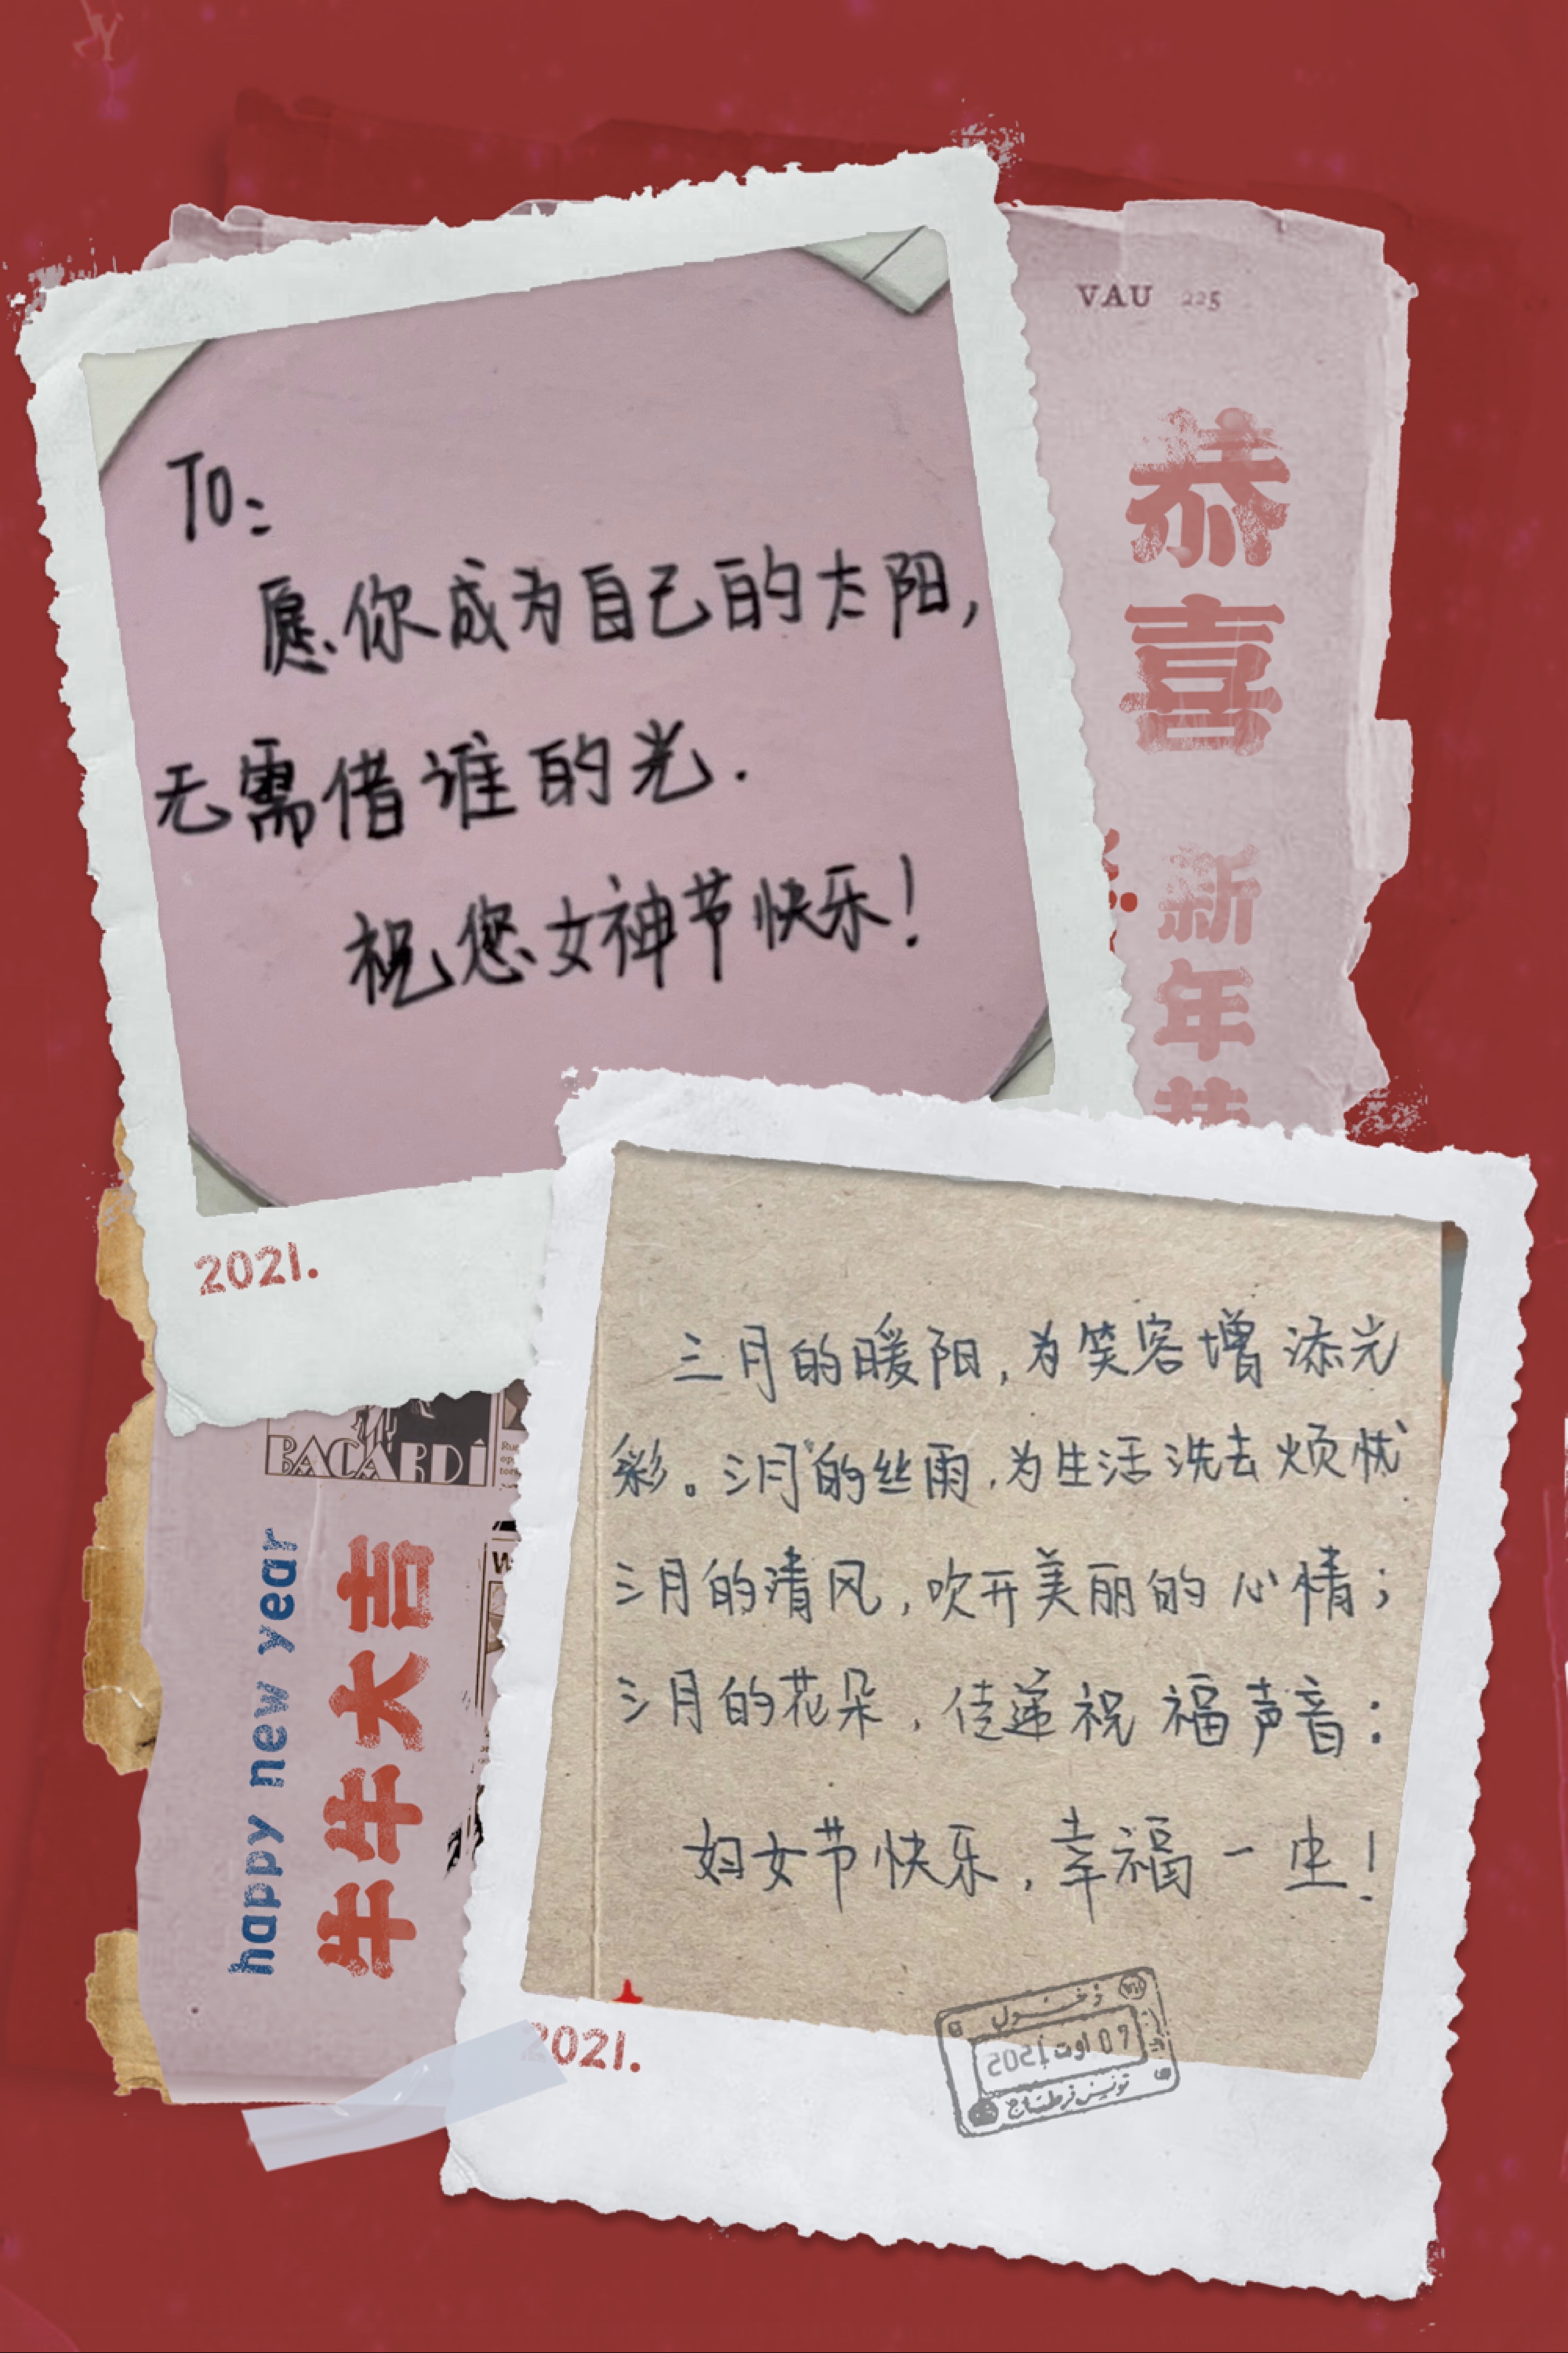 VAU 225
恭喜
新年
TO:
愿你成为自己的太阳,
无需借谁的光.
祝您女神节快乐!
2021.
三月的暖阳,为笑容增添光
彩。三月的丝雨,为生活洗去烦忧
三月的清风,吹开美丽的心情;
三月的花朵,传递祝福声音:
妇女节快乐,幸福一生!
2021.
BACARDI
happy new year
牛牛大吉
07 اوت 2021